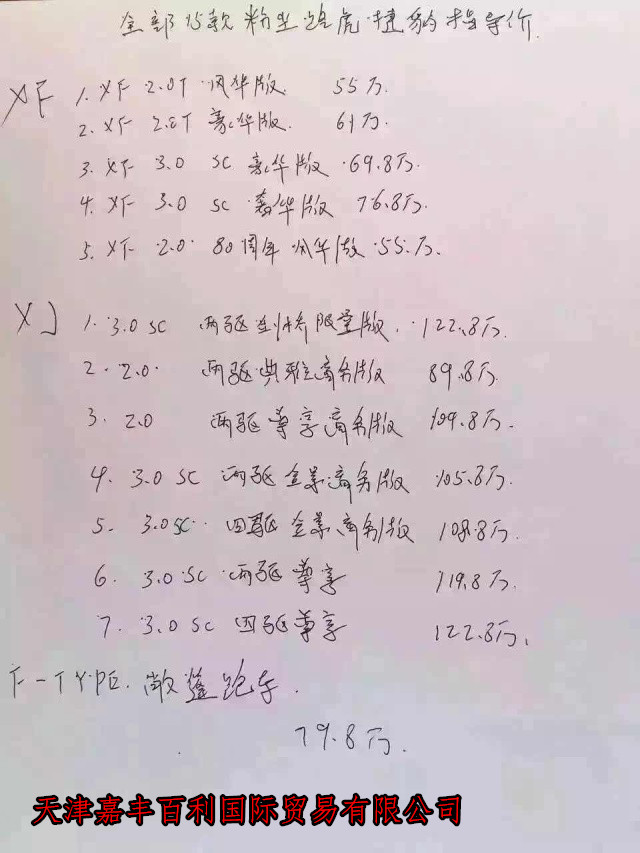 全部15款 路虎·捷豹指导价
XF 1. XF 2.0T 风华版 55万.
2. XF 2.0T 豪华版. 61万.
3. XF 3.0 SC 豪华版 69.8万.
4. XF 3.0 SC 奢华版 76.8万.
5. XF 2.0 80周年风华版 55万.
XJ 1. 3.0 SC 两驱 限量版. 122.8万.
2. 2.0 两驱典雅商务版 89.8万.
3. 2.0 两驱尊享商务版 109.8万.
4. 3.0 SC 两驱全景商务版 105.8万.
5. 3.0SC 四驱全景商务版 108.8万.
6. 3.0 SC 两驱尊享 119.8万.
7. 3.0 SC 四驱尊享 122.8万.
F-TYPE. 敞篷跑车.
79.8万.
天津嘉丰百利国际贸易有限公司